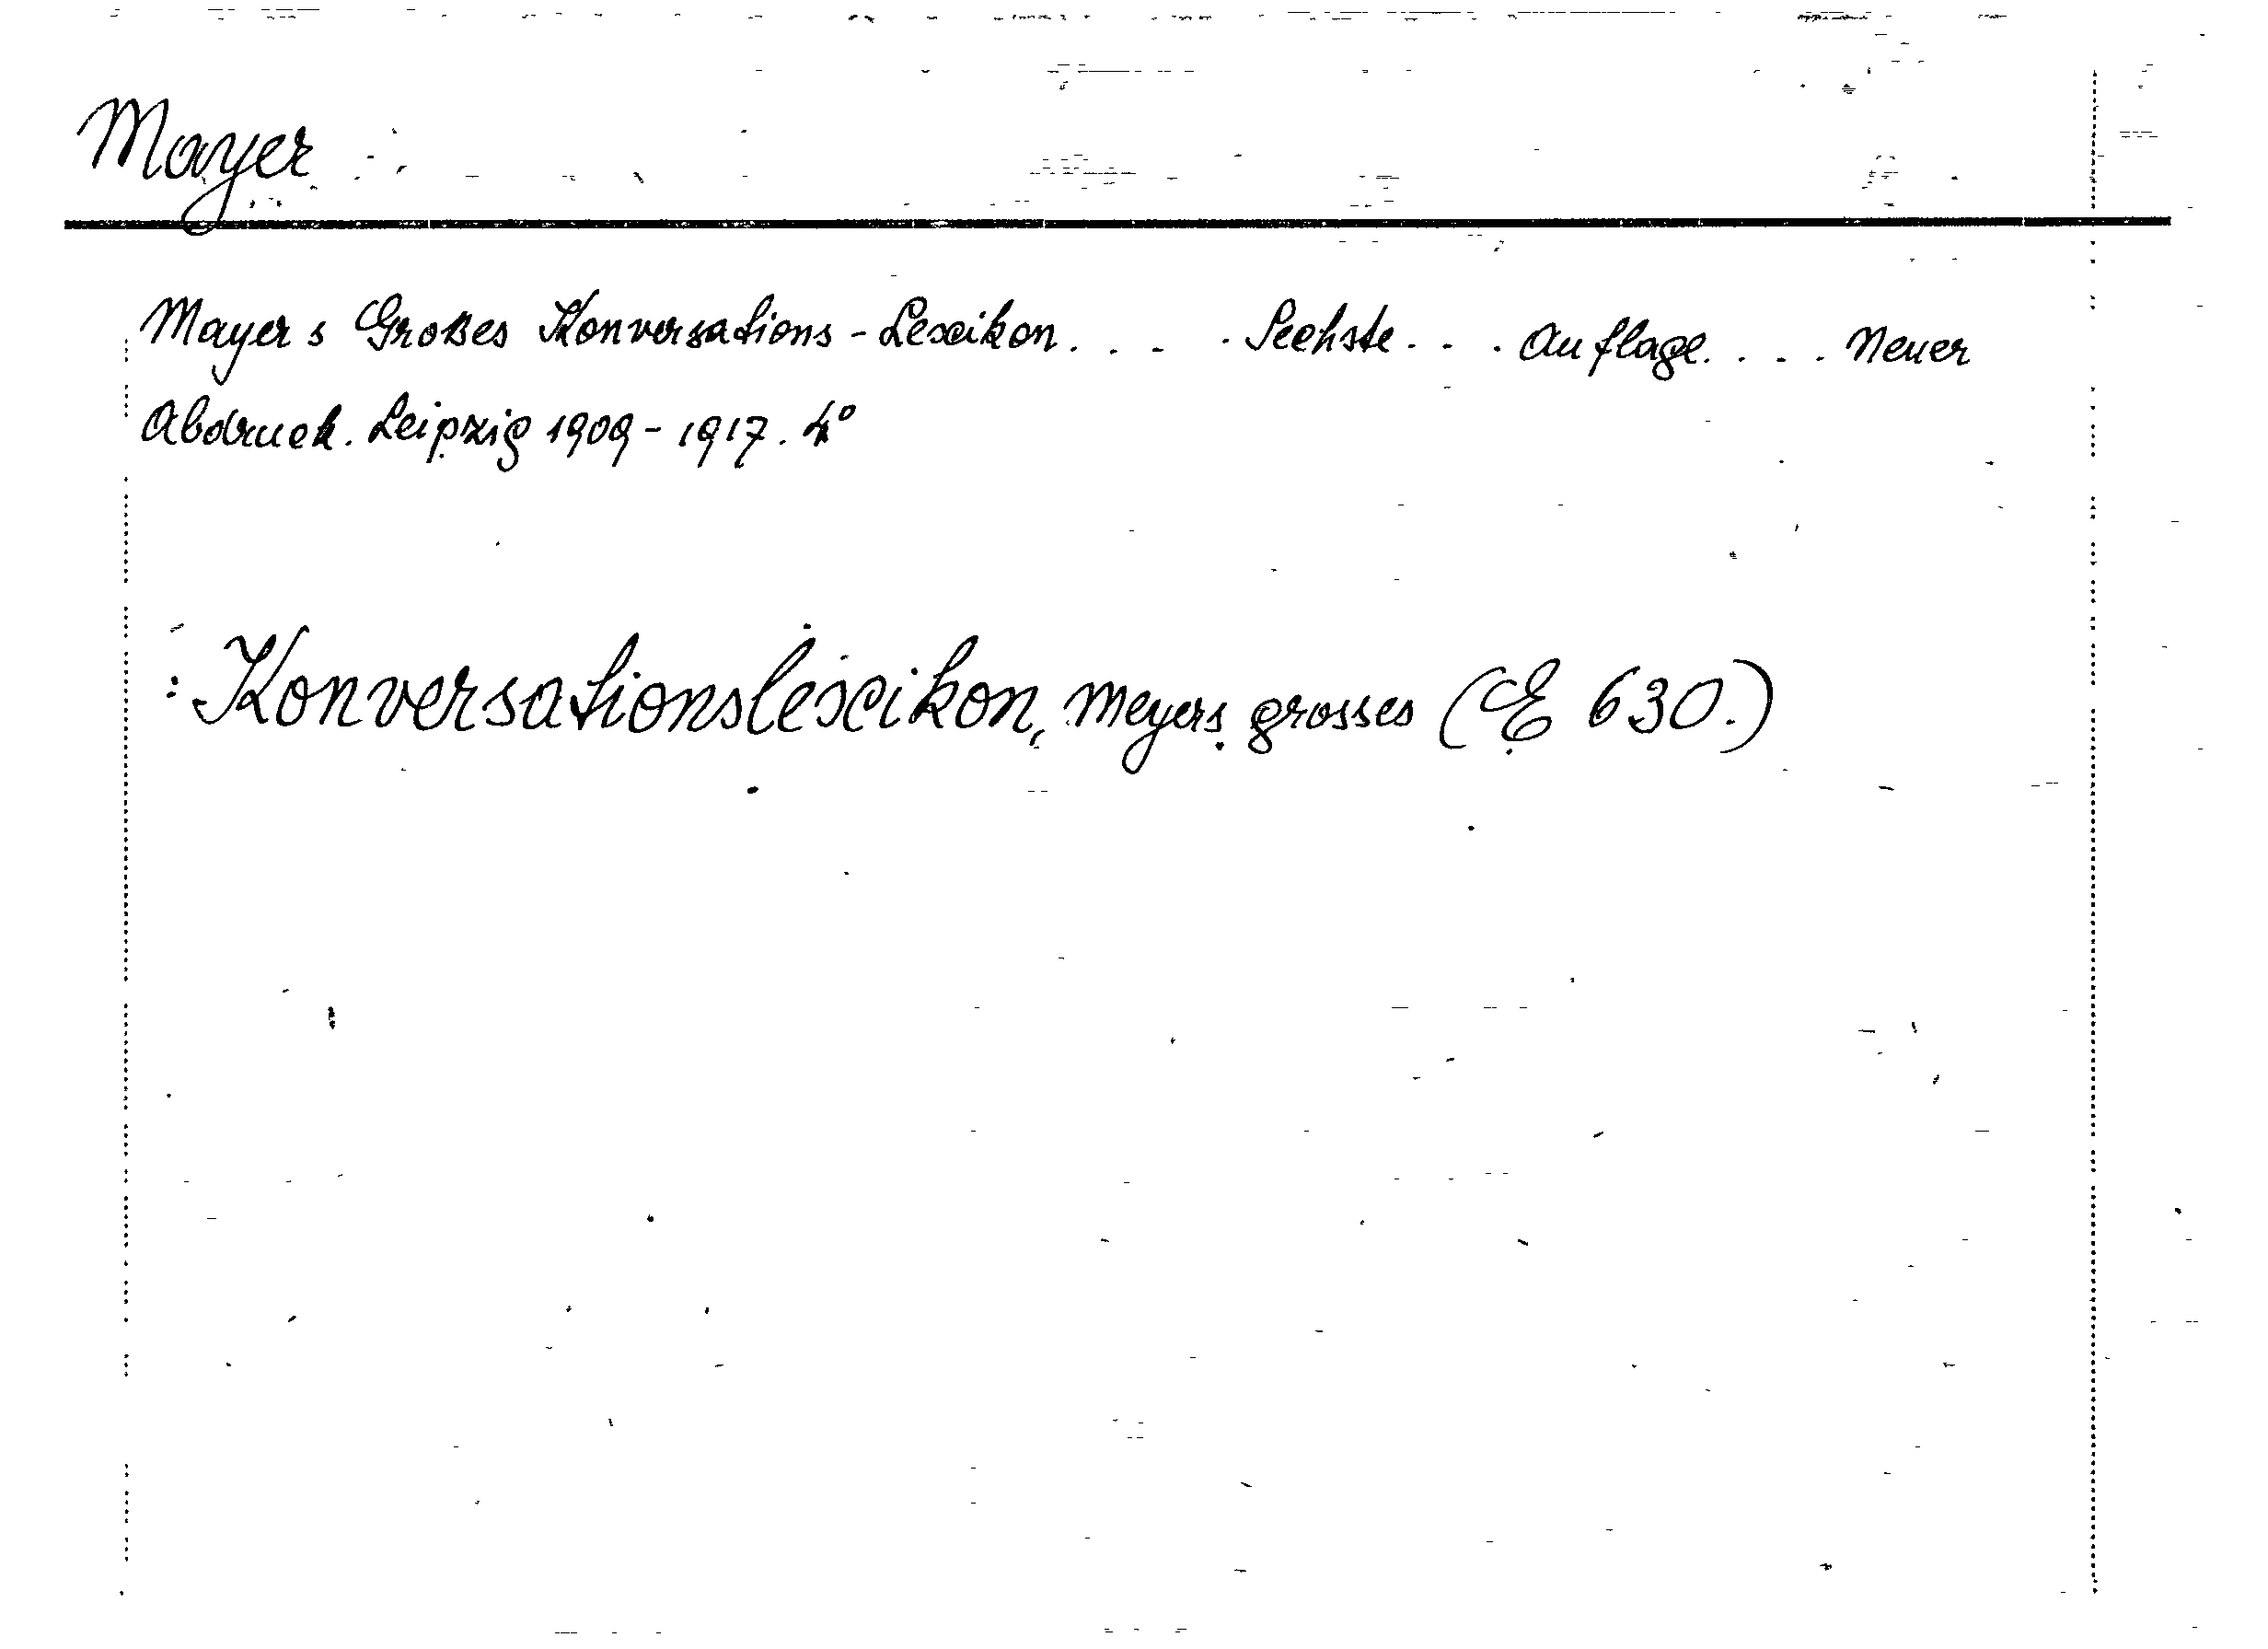 Mayer
Mayers Großes Konversations-Lexikon. . . . . Sechste. . . Auflage. . . . Neuer
Abdruck. Leipzig 1909-1917. 4°
: Konversationslexikon, Meyers grosses (E 630.)